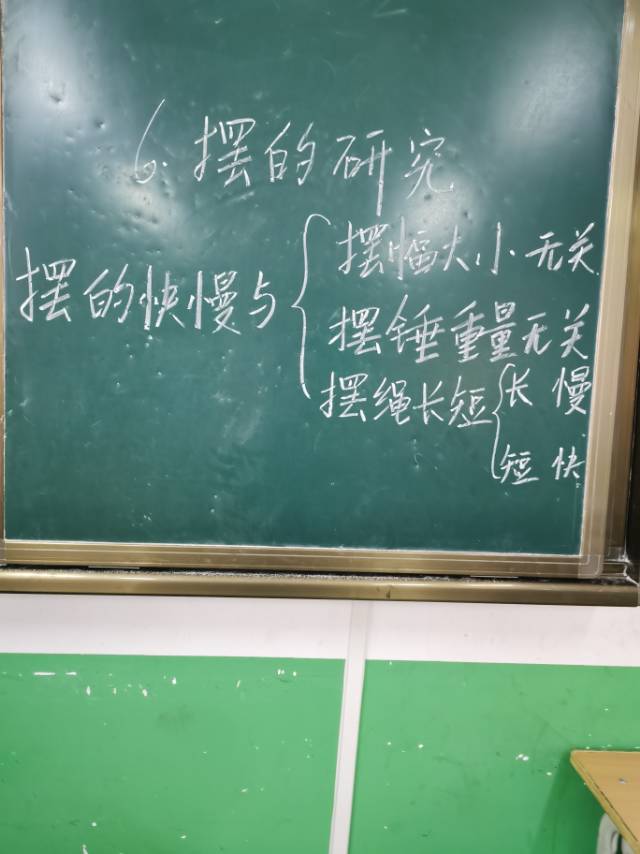 6. 摆的研究
摆的快慢与
摆幅大小无关
摆锤重量无关
摆绳长短
长 慢
短 快